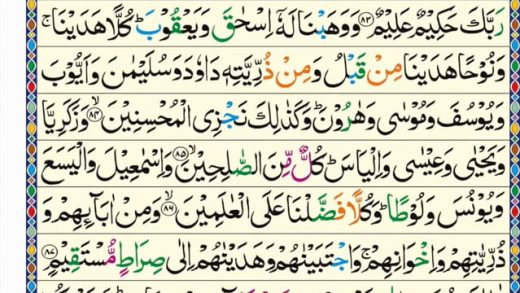 رَبَّكَ حَكِيْمٌ عَلِيْمٌ ﴿۸۳﴾ وَوَهَبْنَا لَهٗۤ اِسْحٰقَ وَيَعْقُوْبَ ؕ كُلًّا هَدَيْنَا ۚ
وَنُوْحًا هَدَيْنَا مِنْ قَبْلُ وَمِنْ ذُرِّيَّتِهٖ دَاوٗدَ وَسُلَيْمٰنَ وَاَيُّوْبَ
وَيُوْسُفَ وَمُوْسٰى وَهٰرُوْنَ ؕ وَكَذٰلِكَ نَجْزِى الْمُحْسِنِيْنَ ﴿۸۴﴾ ۙ وَزَكَرِيَّا
وَيَحْيٰى وَعِيْسٰى وَاِلْيَاسَ ؕ كُلٌّ مِّنَ الصّٰلِحِيْنَ ﴿۸۵﴾ ۙ وَاِسْمٰعِيْلَ وَالْيَسَعَ
وَيُوْنُسَ وَلُوْطًا ؕ وَكُلًّا فَضَّلْنَا عَلَى الْعٰلَمِيْنَ ﴿۸۶﴾ ۙ وَمِنْ اٰبَآئِهِمْ وَ
ذُرِّيّٰتِهِمْ وَاِخْوَانِهِمْ ۚ وَاجْتَبَيْنٰهُمْ وَهَدَيْنٰهُمْ اِلٰى صِرَاطٍ مُّسْتَقِيْمٍ ﴿۸۷﴾